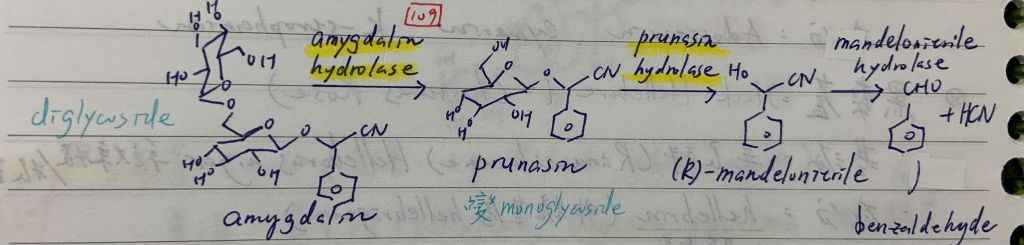 109
amygdalin
hydrolase
prunasin
hydrolase
mandelonitrile
hydrolase
diglycoside
HO
OH
HO
HO
OH
O
CN
OH
HO
HO
OH
O
CN
HO
CN
CHO
+ HCN
amygdalin
prunasin
變 monoglycoside
(R)-mandelonitrile
benzaldehyde